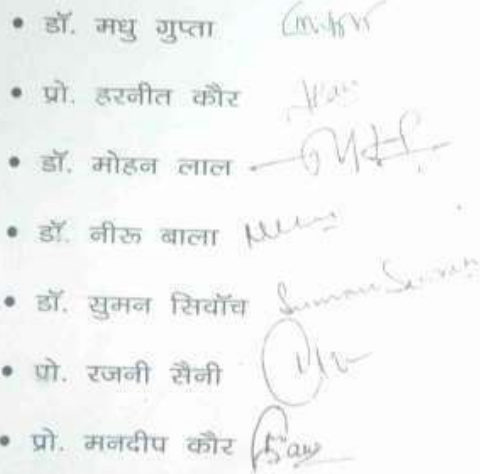 • डॉ. मधु गुप्ता
• प्रो. हरनीत कौर
• डॉ. मोहन लाल
• डॉ. नीरू बाला
• डॉ. सुमन सिवॉच Suman
• प्रो. रजनी सैनी
• प्रो. मनदीप कौर